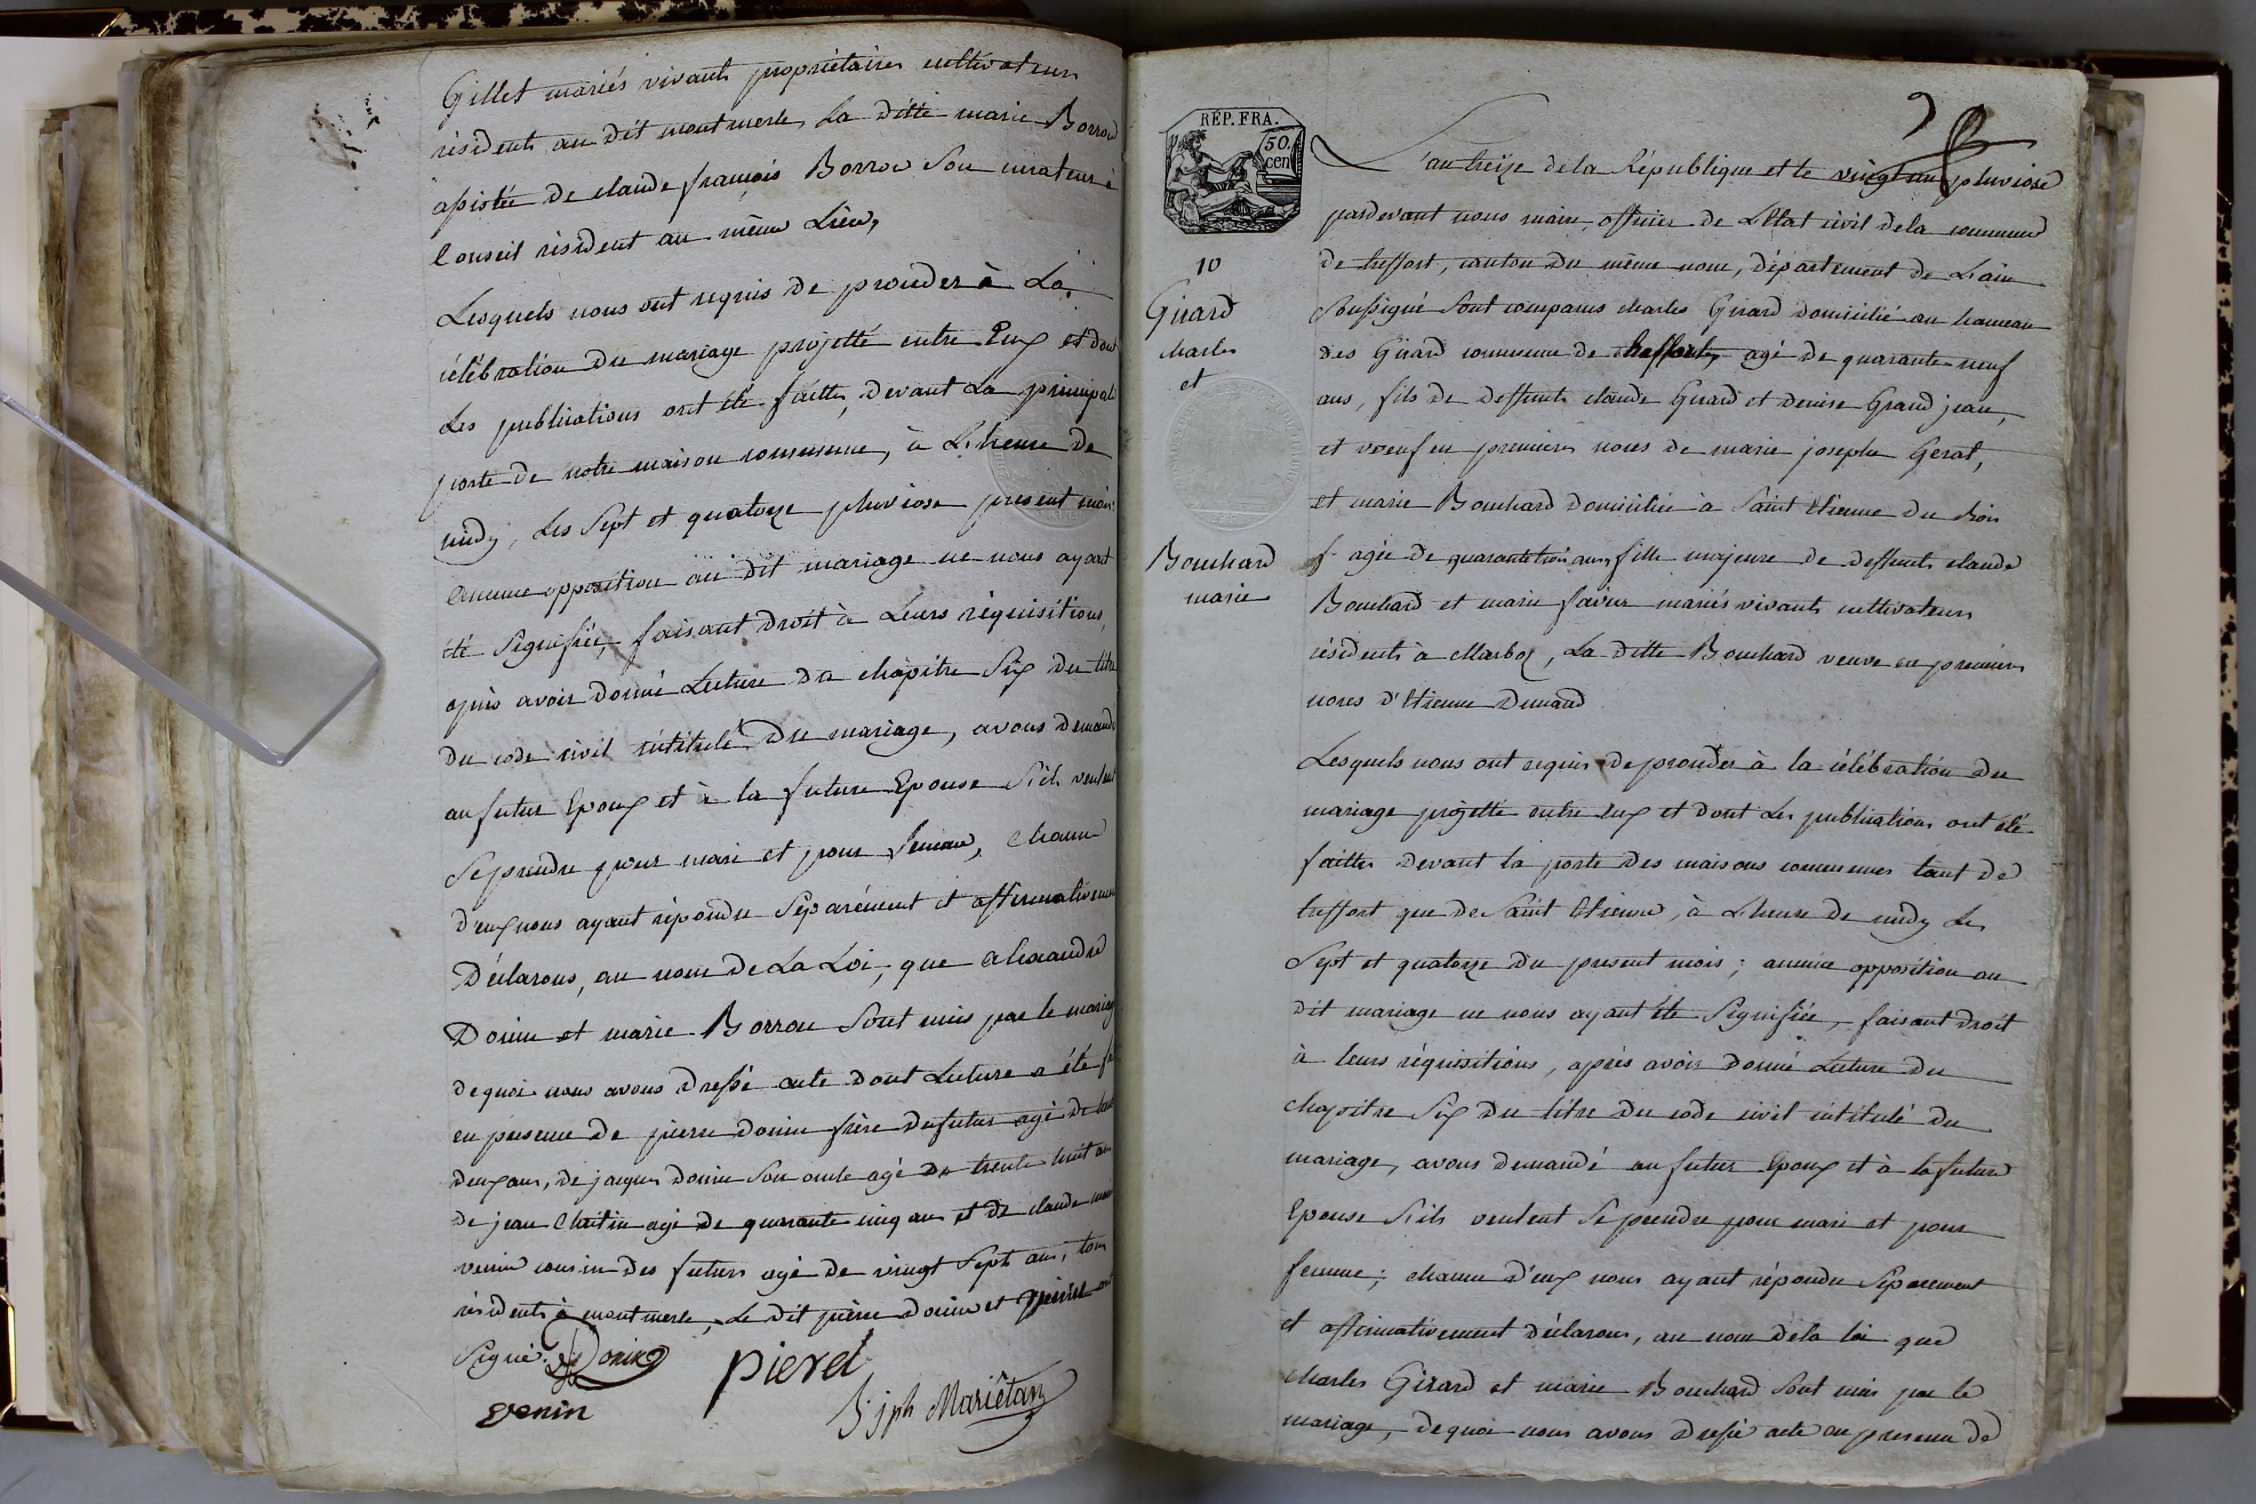 Gillet mariés vivants propriétaires cultivateurs
résidents au dit montmerle, La ditte marie Borrou
assistée de claude françois Borrou Son curateur à
Conseil résident au même Lieu,
Lesquels nous ont requis de procèder à La
célébration du mariage projetté entre Eux et dont
Les publications ont été faittes, devant La principale
porte de notre maison commune, à L'heure de
midy, Les Sept et quatorze pluviose present mois
aucune opposition au dit mariage ne nous ayant
été Signifiée, faisant droit à Leurs réquisitions,
après avoir donné Lecture du chapitre Six du titre
du code civil intitulé du mariage, avons demandé
au futur Epoux et à la future Epouse S'ils veulent
Se prendre pour mari et pour femme, chacun
d'eux nous ayant répondu Séparément et affirmativement
Déclarons, au nom de La Loi, que alexandre
Donin et marie Borrou Sont unis par le mariage
de quoi nous avons dressé acte dont Lecture a été
en presence de pierre donin frère du futur agé de
deux ans, de jacques donin Son oncle agé de trente huit ans
de jean agé de quarante cinq ans et de claude
venin cousin des futurs agé de vingt Sept ans, tous
résidents à montmerle, Le dit pierre donin et
Signé. Donin
pierel
venin
jph Mariêtan
RÉP. FRA.
50.
cen
L'an treize de la République et le vingt un pluviose
pardevant nous maire, officier de L'Etat civil de la commune
de treffort, canton du même nom, département de L'ain
Soussigné Sont comparus charles Girard domicilié au hameau
des Girard commune de treffort, agé de quarante neuf
ans, fils de deffunts claude Girard et denise Grand jean,
et voeuf en premieres noces de marie josephe Gerat,
et marie Bouchard domiciliée à Saint Etienne du bois
agée de quarante trois ans, fille majeure de deffunts claude
Bouchard et marie favier mariés vivants cultivateurs
résidents à Marboz, La ditte Bouchard veuve en premieres
noces d'Etienne Durand
10
Girard
charles
et
Bouchard
marie
Lesquels nous ont requis de procèder à la célébration du
mariage projetté entre Eux et dont Les publications ont été
faittes devant la porte des maisons communes tant de
treffort que de Saint Etienne, à L'heure de midy Les
Sept et quatorze du present mois; aucune opposition au
dit mariage ne nous ayant été Signifiée, faisant droit
à leurs réquisitions, après avoir donné Lecture du
chapitre Six du titre du code civil intitulé du
mariage, avons demandé au futur Epoux et à la future
Epouse S'ils veulent Se prendre pour mari et pour
femme; chacun d'eux nous ayant répondu Séparement
et affirmativement déclarons, au nom de la loi que
charles Girard et marie Bouchard Sont unis par le
mariage, de quoi nous avons dressé acte en presence de